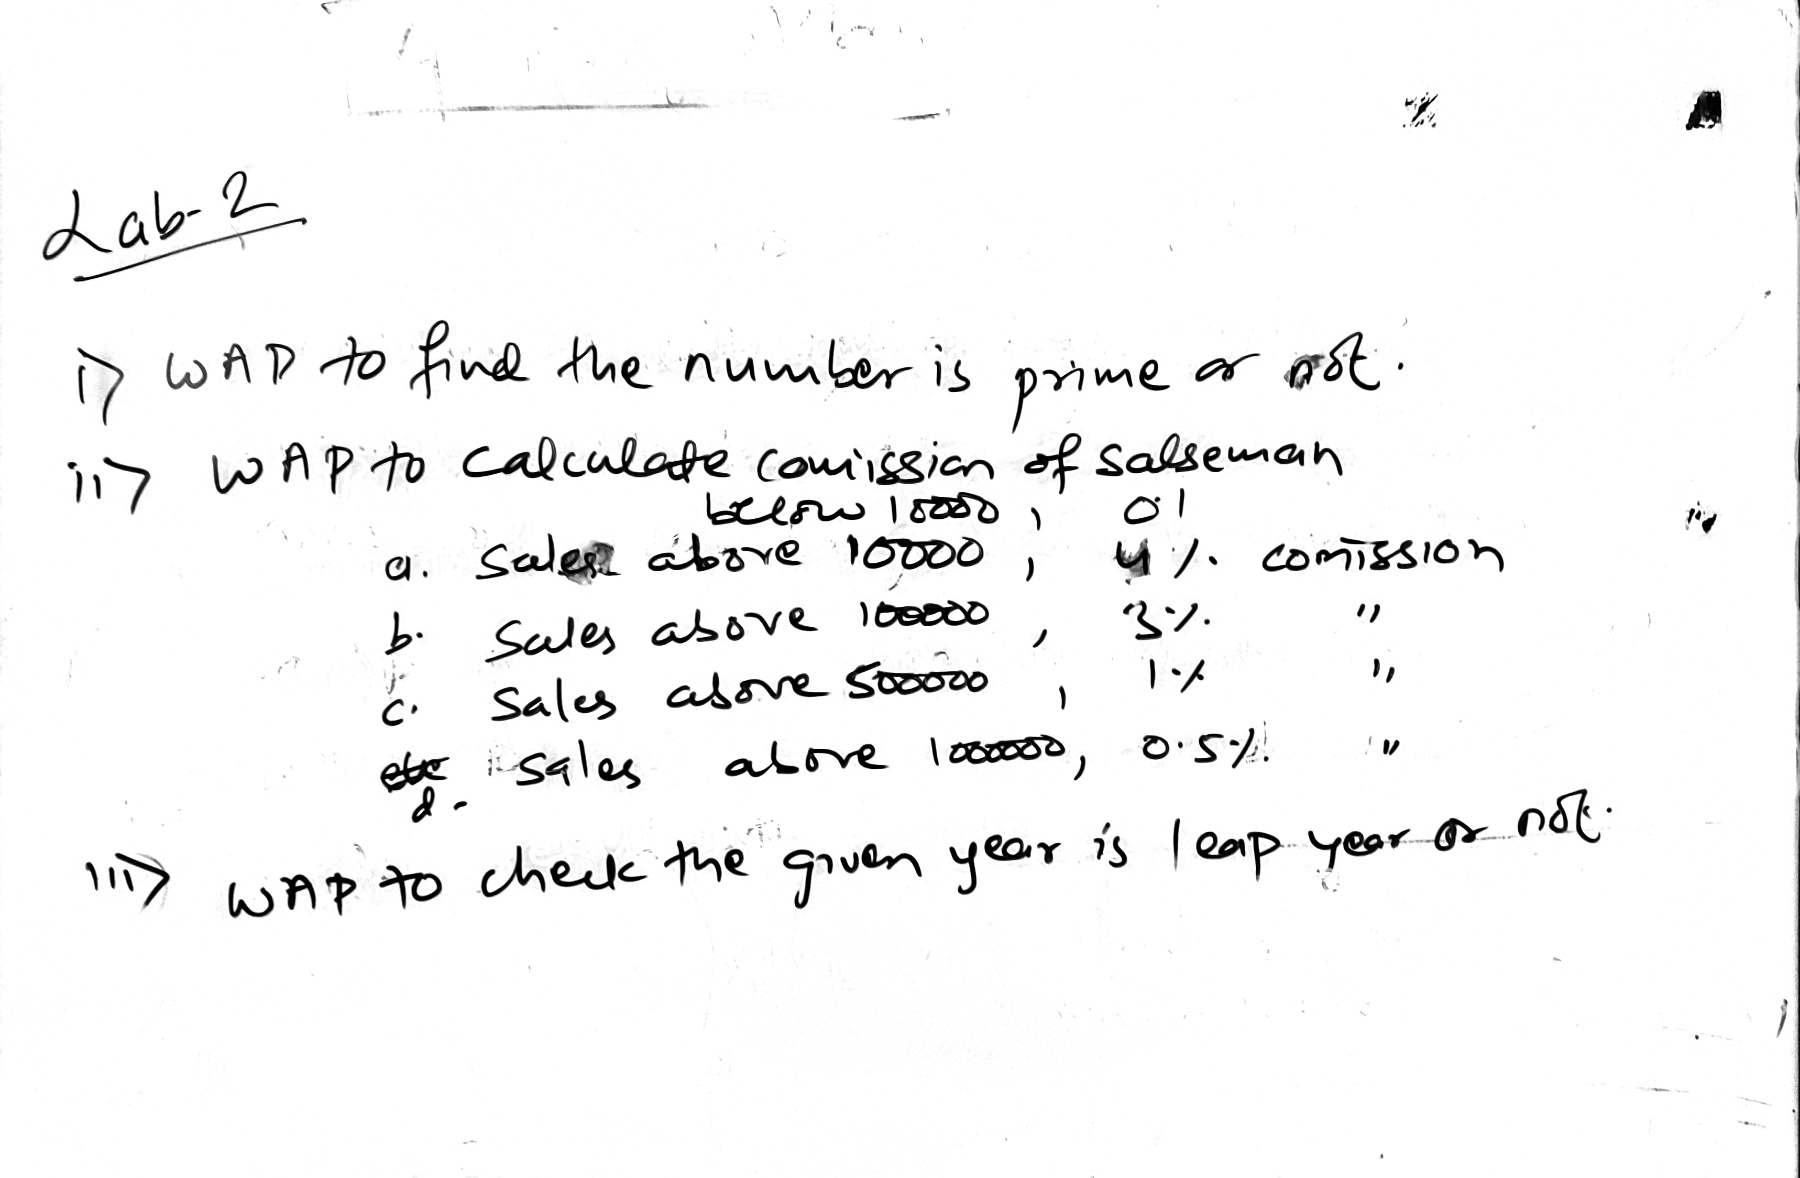 Lab-2
i> WAP to find the number is prime or not.
ii> WAP to calculate comission of salseman
below 10000, 0.1
a. Sales above 10000, 4%. comission
b. Sales above 100000, 3%. "
c. Sales above 500000, 1% "
d. Sales above 1000000, 0.5%. "
iii> WAP to check the given year is leap year or not.